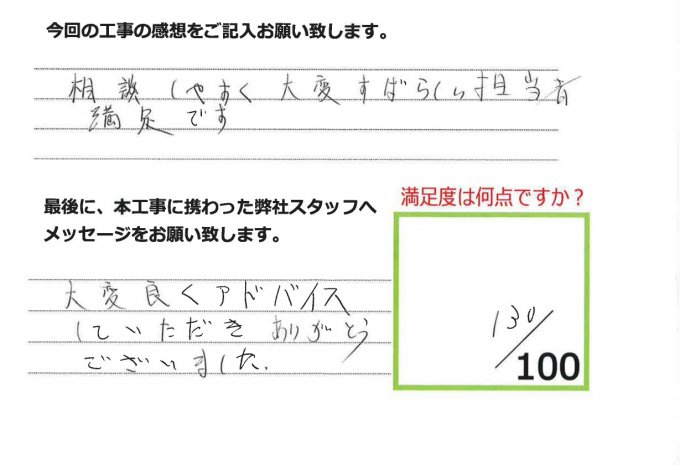 今回の工事の感想をご記入お願い致します。
相談しやすく大変すばらしい担当者
満足です
最後に、本工事に携わった弊社スタッフへ
メッセージをお願い致します。
満足度は何点ですか？
大変良くアドバイス
していただきありがとう
ございました.
130/
100